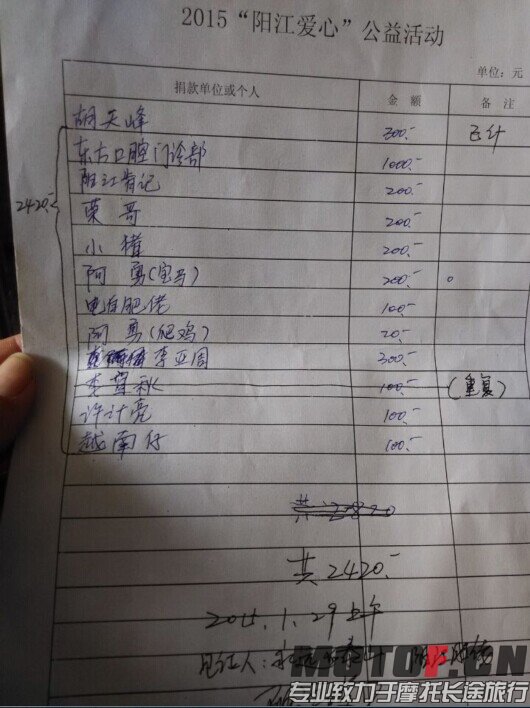 2015“阳江爱心”公益活动
单位：元
捐款单位或个人 金额 备注
胡天峰 300.-
东方口腔门诊部 1000.-
阳江肯记 200.-
荣哥 200.-
小猪 200.-
阿勇(宝马) 200.-
电白肥佬 100.-
阿勇(肥鸡) 20.-
李亚周 300.-
100.- (重复)
许计亮 100.-
越南仔 100.-
2420.-
共2820
共2420.-
2015.1.29上午
见证人：
MOTOR.CN
专业致力于摩托长途旅行